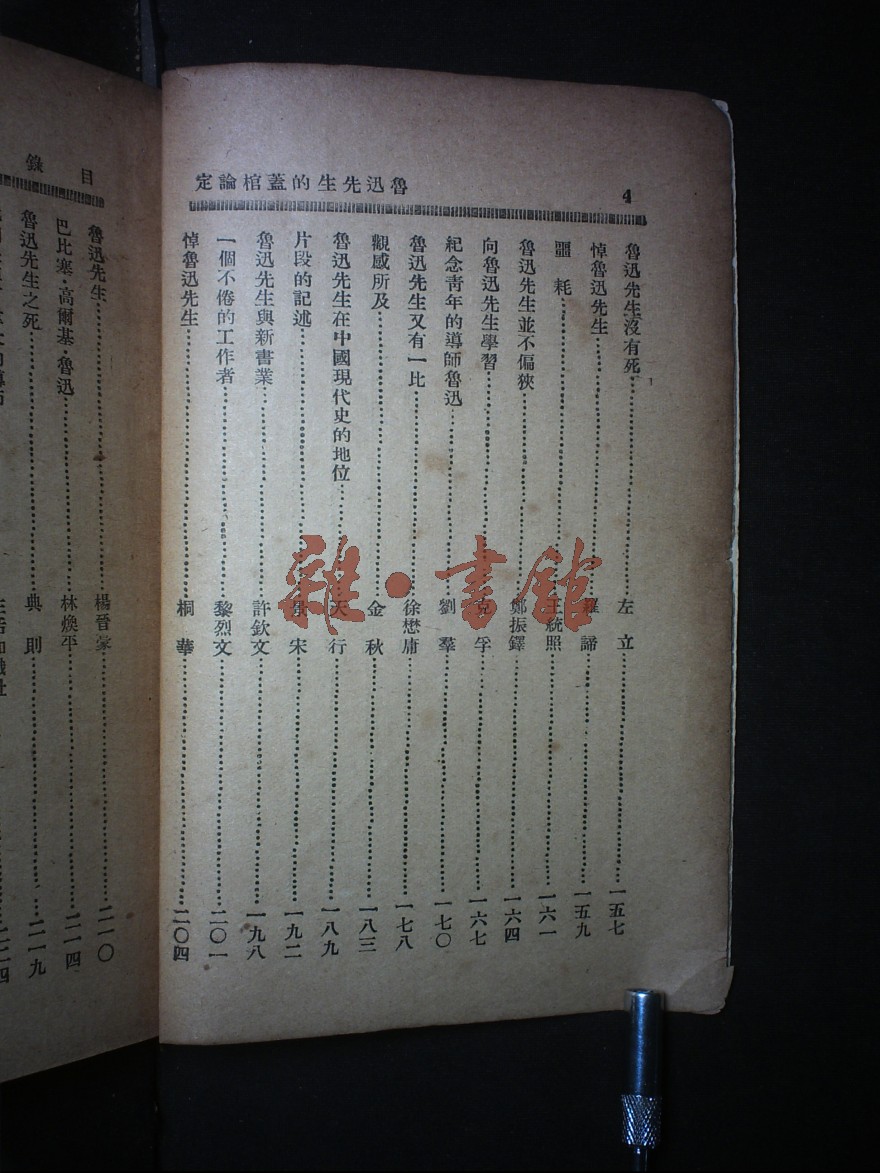 4
魯迅先生的蓋棺論定
魯迅先生沒有死……左立……一五七
悼魯迅先生……羅諦……一五九
噩耗……王統照……一六一
魯迅先生並不偏狹……鄭振鐸……一六四
向魯迅先生學習……克孚……一六七
紀念青年的導師魯迅……劉羣……一七〇
魯迅先生又有一比……徐懋庸……一七八
觀感所及……金秋……一八三
魯迅先生在中國現代史的地位……天行……一八九
片段的記述……景宋……一九二
魯迅先生與新書業……許欽文……一九八
一個不倦的工作者……黎烈文……二〇一
悼魯迅先生……桐華……二〇四
目錄
魯迅先生……楊晉豪……二一〇
巴比塞·高爾基·魯迅……林煥平……二一四
魯迅先生之死……典則……二一九
生活知識社……二二四
雜·書館